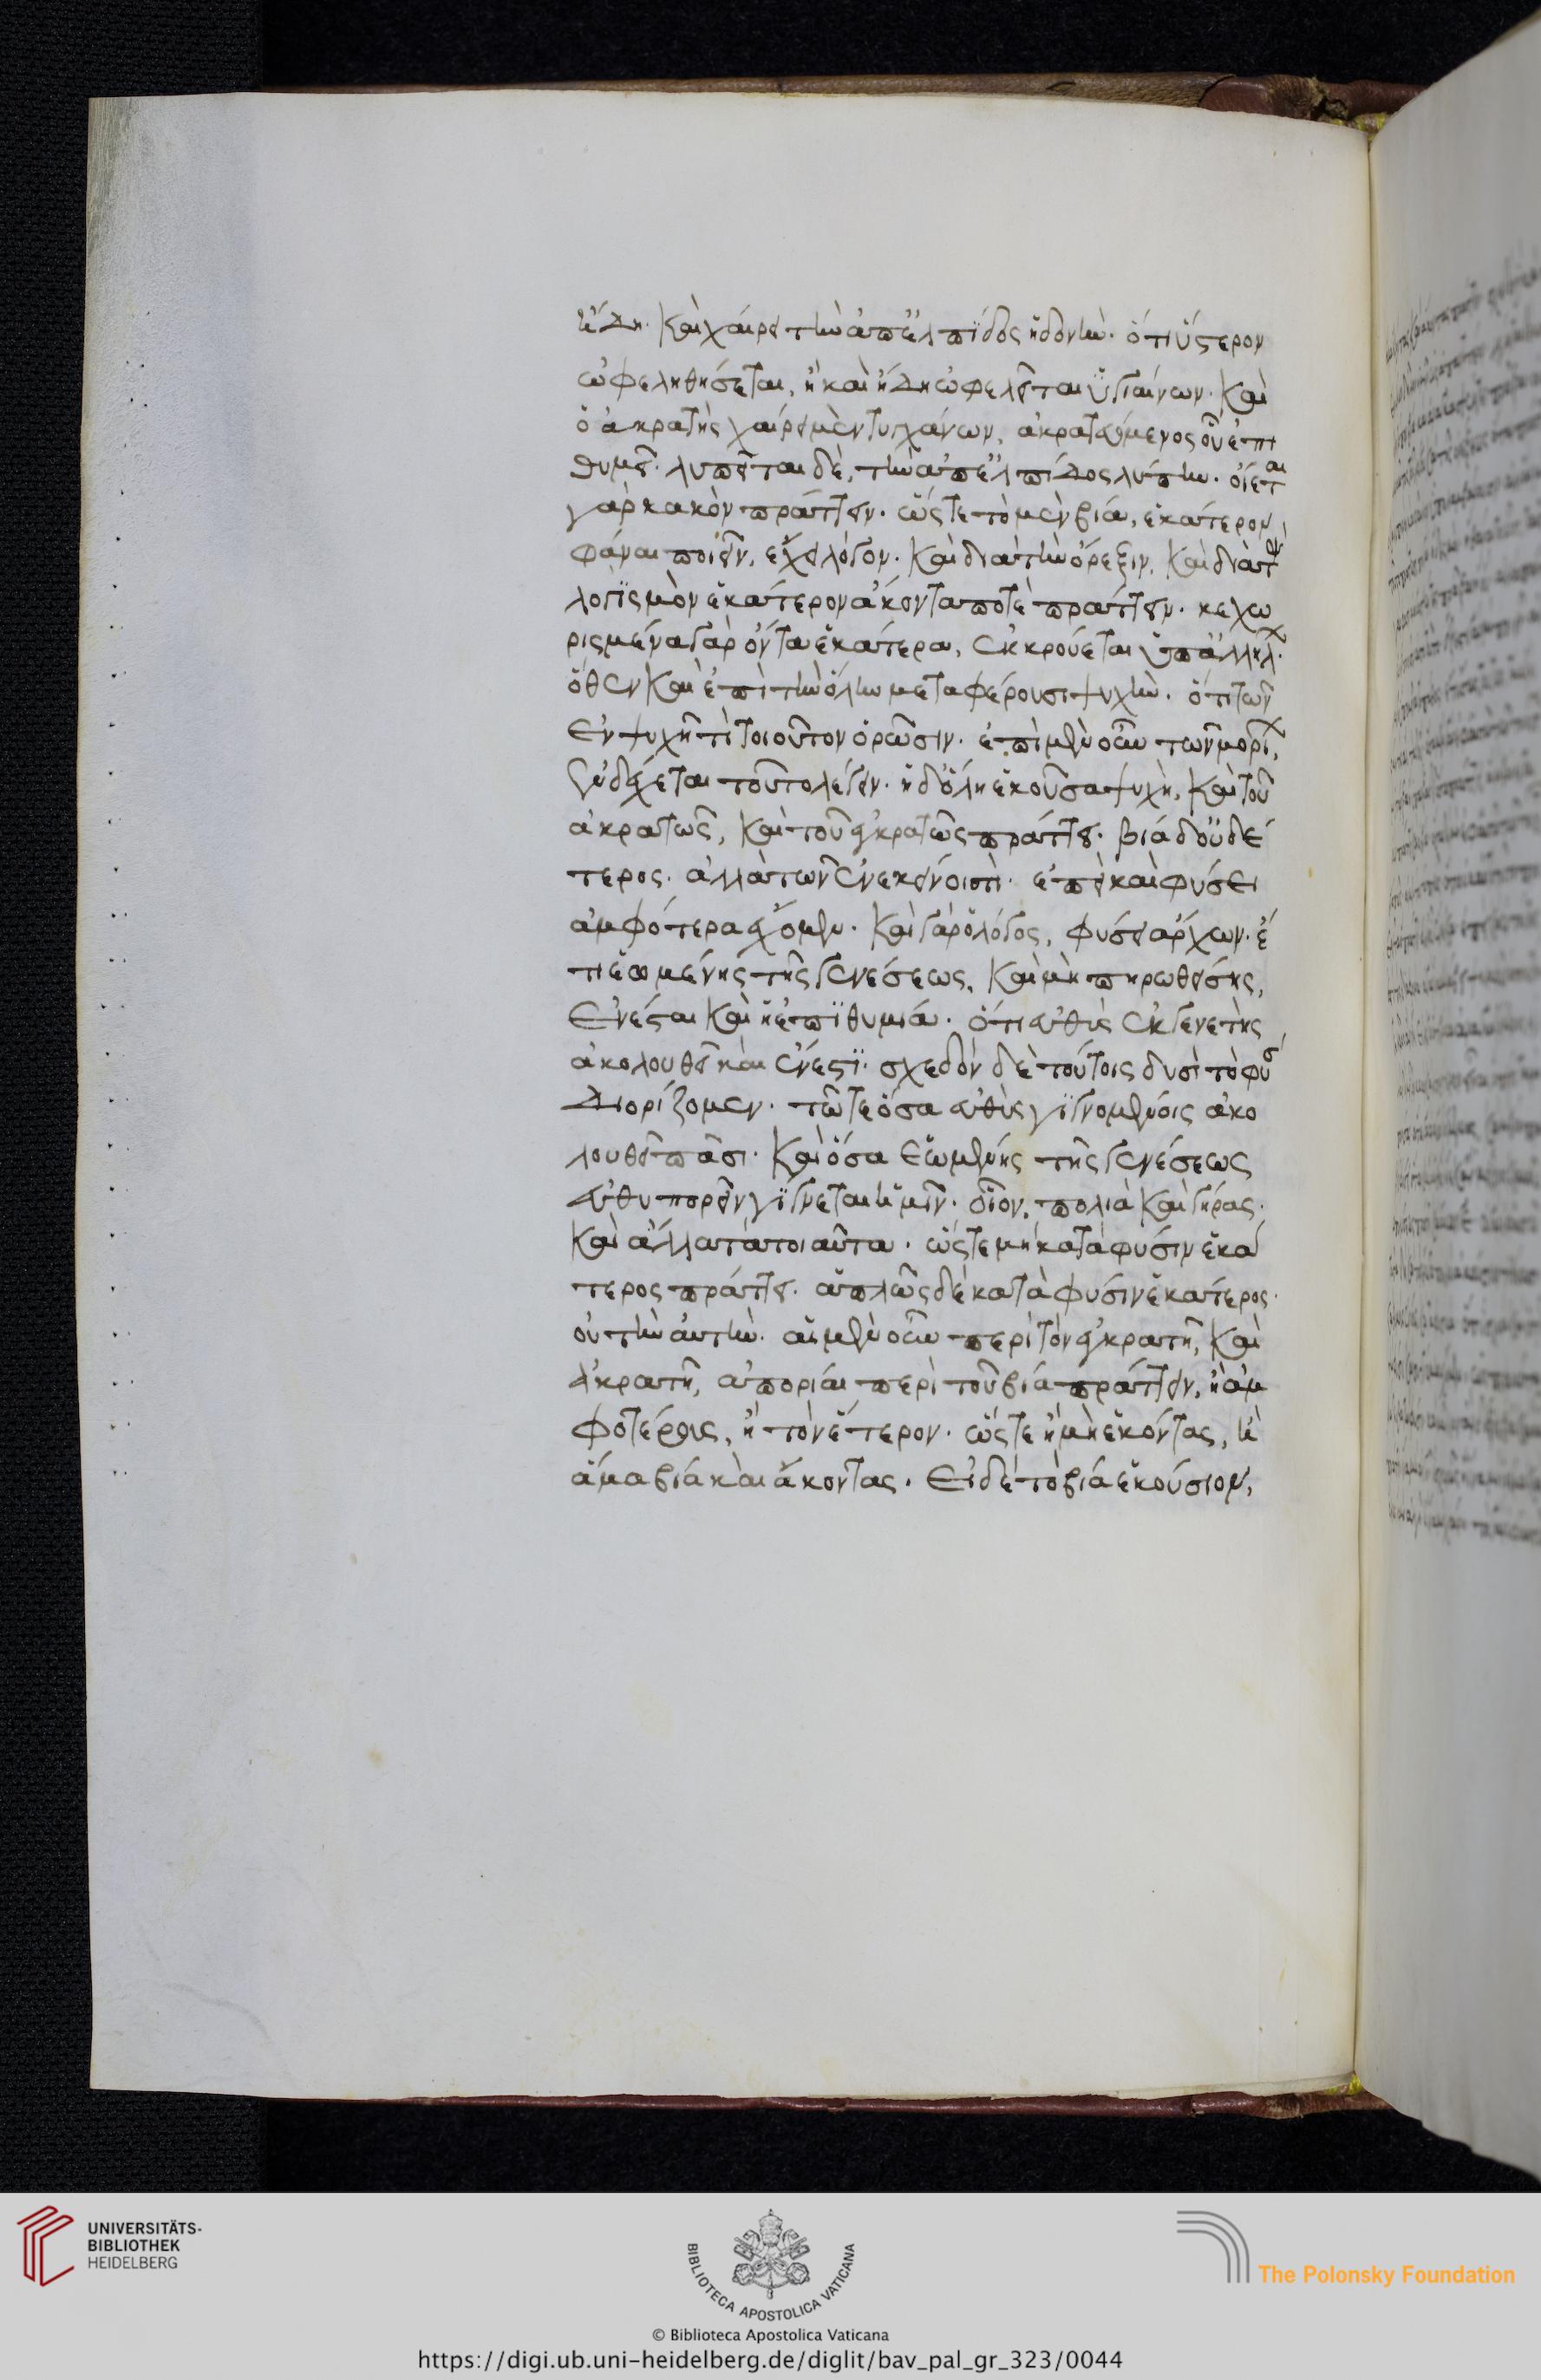 ἤδη. καὶ χαίρει τὴν ἀπ' ἐλπίδος ἡδονὴν. ὅτι ὕστερον
ὠφεληθήσεται, ἢ καὶ ἤδη ὠφελεῖται ὑγιαίνων. καὶ
ὁ ἀκρατὴς χαίρει μὲν τυγχάνων, ἀκρατευόμενος οὗ ἐπι
θυμεῖ. λυπεῖται δὲ, τὴν ἀπ' ἐλπίδος λύπην. οἴεται
γὰρ κακὸν πράττειν. ὥστε τὸ μὲν βίᾳ, ἑκάτερον
φάναι ποιεῖν, ἔχει λόγον. καὶ διὰ τὴν ὄρεξιν, καὶ διὰ τὸν
λογισμὸν ἑκάτερον ἄκοντα ποτὲ πράττειν. κεχω
ρισμένα γὰρ ὄντα ἑκάτερα, ἐκκρούεται ὑπ' ἀλλήλων.
ὅθεν καὶ ἐπὶ τὴν ὅλην μεταφέρουσι ψυχὴν. ὅτι τῶν
ἐν ψυχῇ τὶ τοιοῦτον ὁρῶσιν. ἐπὶ μὲν οὖν τῶν μορίων,
ἐνδέχεται τοῦτο λέγειν. ἡ δ' ὅλη ἑκοῦσα ψυχὴ, καὶ τοῦ
ἀκρατῶς, καὶ τοῦ ἐγκρατῶς πράττει. βίᾳ δ' οὐδέ
τερος. ἀλλὰ τῶν ἐν ἐκείνοις τὶ. ἐπεὶ καὶ φύσει
ἀμφότερα ἔχομεν. καὶ γὰρ ὁ λόγος, φύσει ἄρχων. ἐ
πιεωμένης τῆς γενέσεως, καὶ μὴ πηρωθείσης,
ἐνέσται καὶ ἡ ἐπιθυμία. ὅτι εὐθὺς ἐκ γενετῆς
ἀκολουθεῖ καὶ ἔνεστι. σχεδὸν δὲ τούτοις δυσὶ τὸ φύσει
διορίζομεν. τῷ τε ὅσα εὐθὺς γιγνομένοις ἀκο
λουθεῖ πᾶσι. καὶ ὅσα ἐωμένης τῆς γενέσεως
εὐθυπορεῖν γίγνεται ἡμῖν. οἷον, πολιὰ καὶ γῆρας.
καὶ ἄλλα τὰ τοιαῦτα. ὥστε μὴ κατὰ φύσιν ἑκά
τερος πράττει. ἁπλῶς δὲ κατὰ φύσιν ἑκάτερος.
οὐ τὴν αὐτὴν. αἱ μὲν οὖν περὶ τὸν ἐγκρατῆ, καὶ
ἀκρατῆ, ἀπορίαι περὶ τοῦ βίᾳ πράττειν, ἢ ἀμ
φοτέρους, ἢ τὸν ἕτερον. ὥστε ἢ μὴ ἑκόντας, ἢ
ἅμα βίᾳ καὶ ἄκοντας. Εἰ δὲ τὸ βίᾳ ἑκούσιον,
UNIVERSITÄTS-
BIBLIOTHEK
HEIDELBERG
BIBLIOTECA APOSTOLICA VATICANA
The Polonsky Foundation
© Biblioteca Apostolica Vaticana
https://digi.ub.uni-heidelberg.de/diglit/bav_pal_gr_323/0044